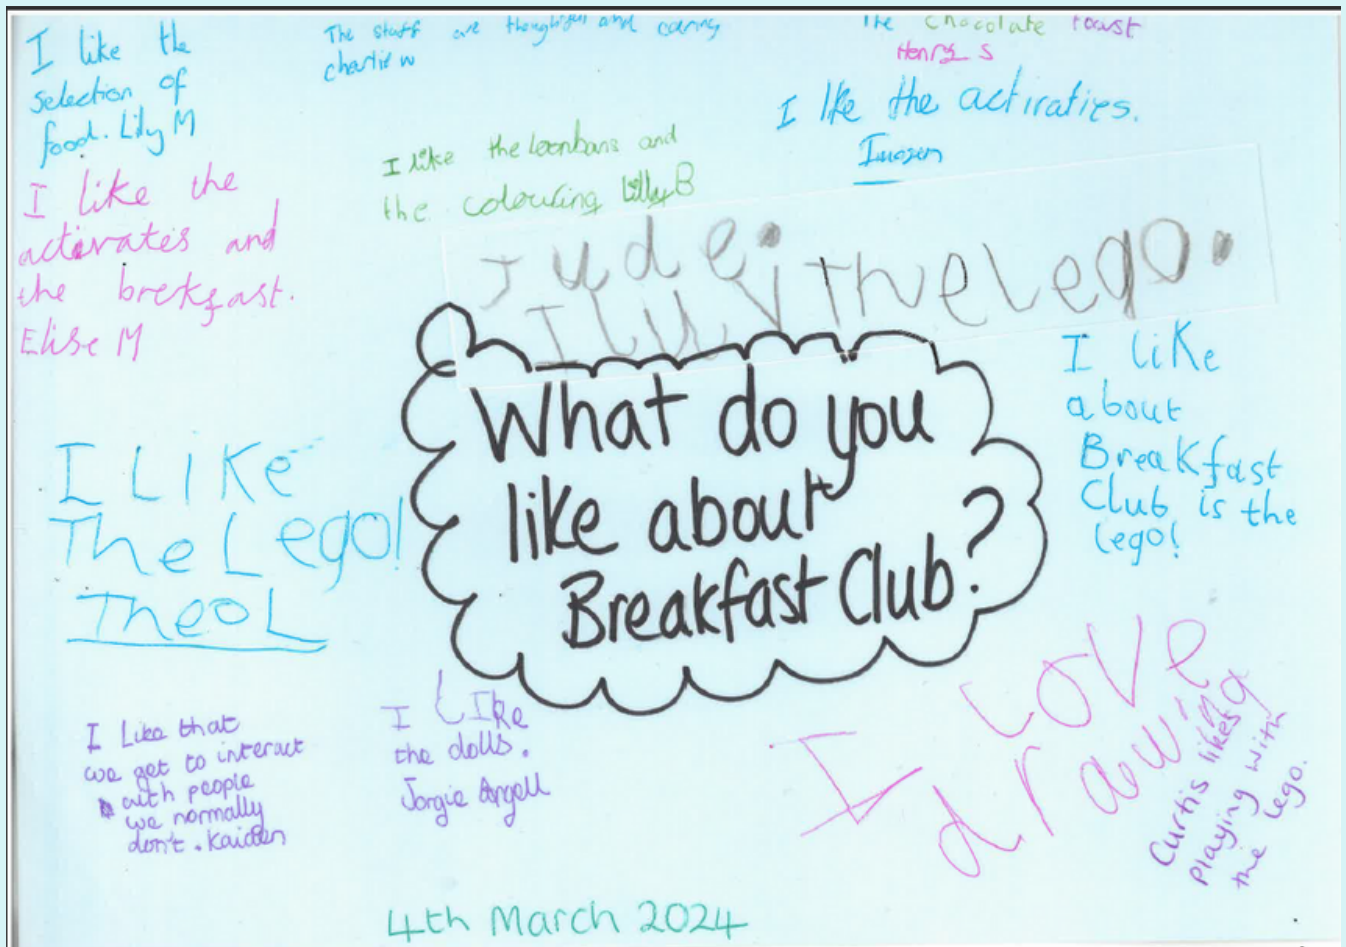 I like the
selection of
food. Lily M
The staff are thoughtful and caring
charlie w
The chocolate toast
Henry S
I like the activaties.
Imogen
I like the loombans and
the colouring Lilly B
I like the
activates and
the brekfast.
Elise M
Jude.
I luv The Lego.
What do you
like about
Breakfast Club?
I like
about
Breakfast
Club is the
lego!
I Like
The Lego!
Theo L
I Like that
we get to interact
with people
we normally
don't. Kaiden
I LIke
the dolls.
Jorgie
I Love
drawing
Curtis likes
playing with
the lego.
4th March 2024